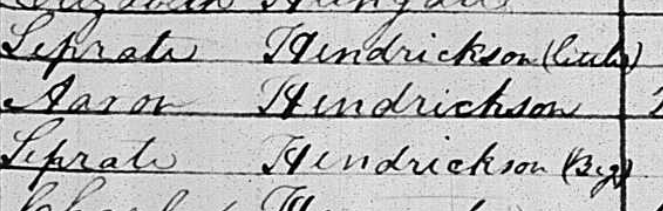 Seprate Hendrickson (little)
Aaron Hendrickson
Seprate Hendrickson (Big)